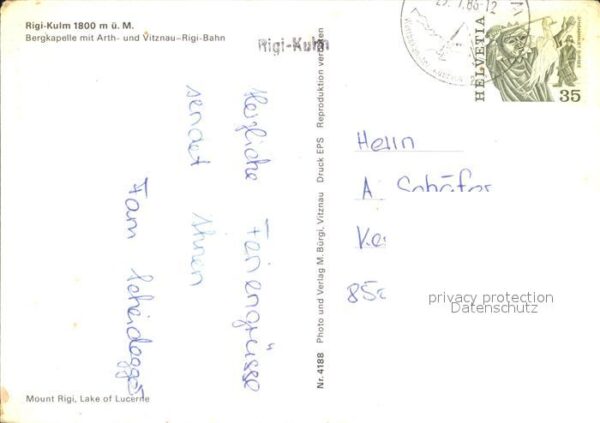 Rigi-Kulm 1800 m ü. M.
Bergkapelle mit Arth- und Vitznau-Rigi-Bahn
Rigi-Kulm
HELVETIA
35
Herzliche Feriengrüsse
sendet Ihnen
Fam Scheidegger
Nr. 4188 Photo und Verlag M. Bürgi, Vitznau Druck EPS Reproduktion verboten
Herrn
A. Schäfer
privacy protection
Datenschutz
Mount Rigi, Lake of Lucerne